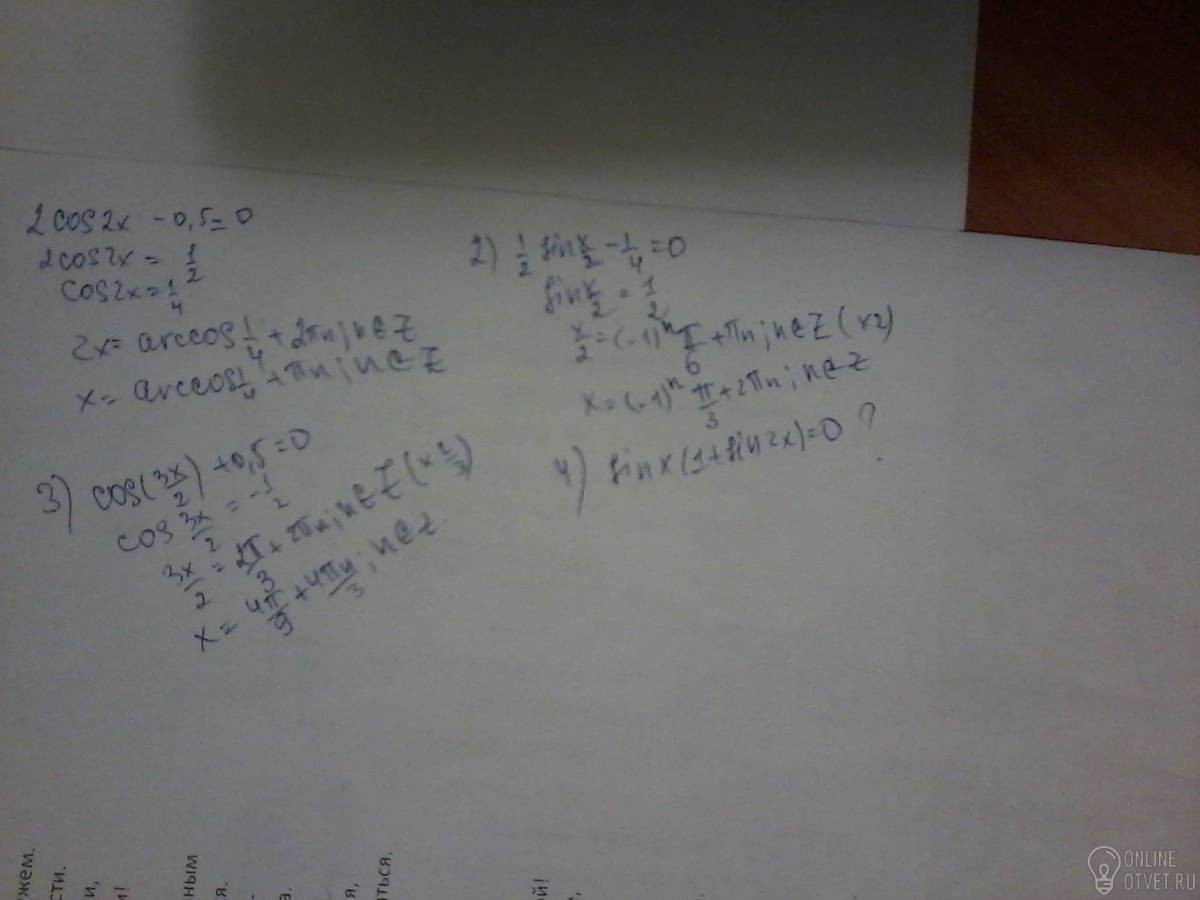 2cos2x - 0,5 = 0
2cos2x = 1/2
cos2x = 1/4
2x = arccos 1/4 + 2πn; n∈Z
x = arccos 1/4 + πn; n∈Z
2) 1/2 sin x/2 - 1/4 = 0
sin x/2 = 1/2
x/2 = (-1)ⁿ π/6 + πn; n∈Z (x2)
x = (-1)ⁿ π/3 + 2πn; n∈Z
3) cos(3x/2) + 0,5 = 0
cos 3x/2 = -1/2
3x/2 = 2π/3 + 2πn; n∈Z (x 2/3)
x = 4π/9 + 4πn/3; n∈Z
4) sinx(1+sin2x)=0 ?
ужем.
сти.
и,
и!
ным
ся.
а.
я,
ться.
ой!
ONLINE
OTVET.RU